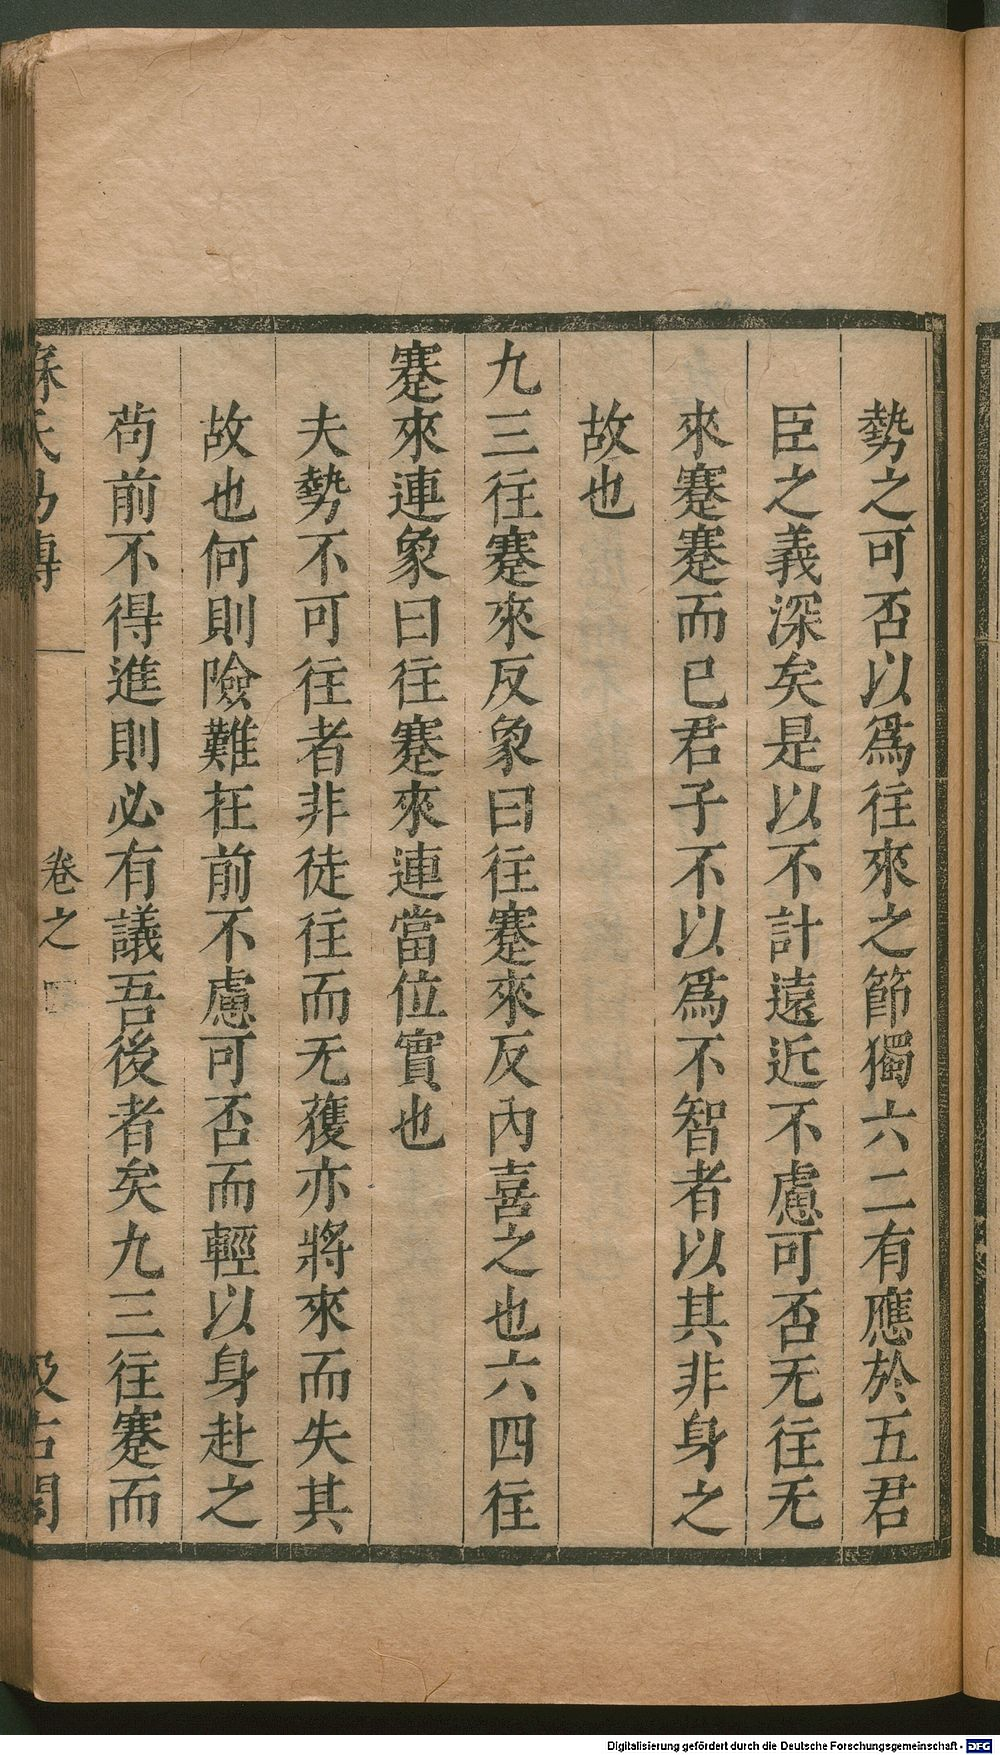 勢之可否以爲往來之節獨六二有應於五君
臣之義深矣是以不計遠近不慮可否无往无
來蹇蹇而已君子不以爲不智者以其非身之
故也
九三往蹇來反象曰往蹇來反內喜之也六四往
蹇來連象曰往蹇來連當位實也
夫勢不可往者非徒往而无獲亦將來而失其
故也何則險難在前不慮可否而輕以身赴之
苟前不得進則必有議吾後者矣九三往蹇而
蘇氏易傳
卷之四
汲古閣
Digitalisierung gefördert durch die Deutsche Forschungsgemeinschaft - DFG